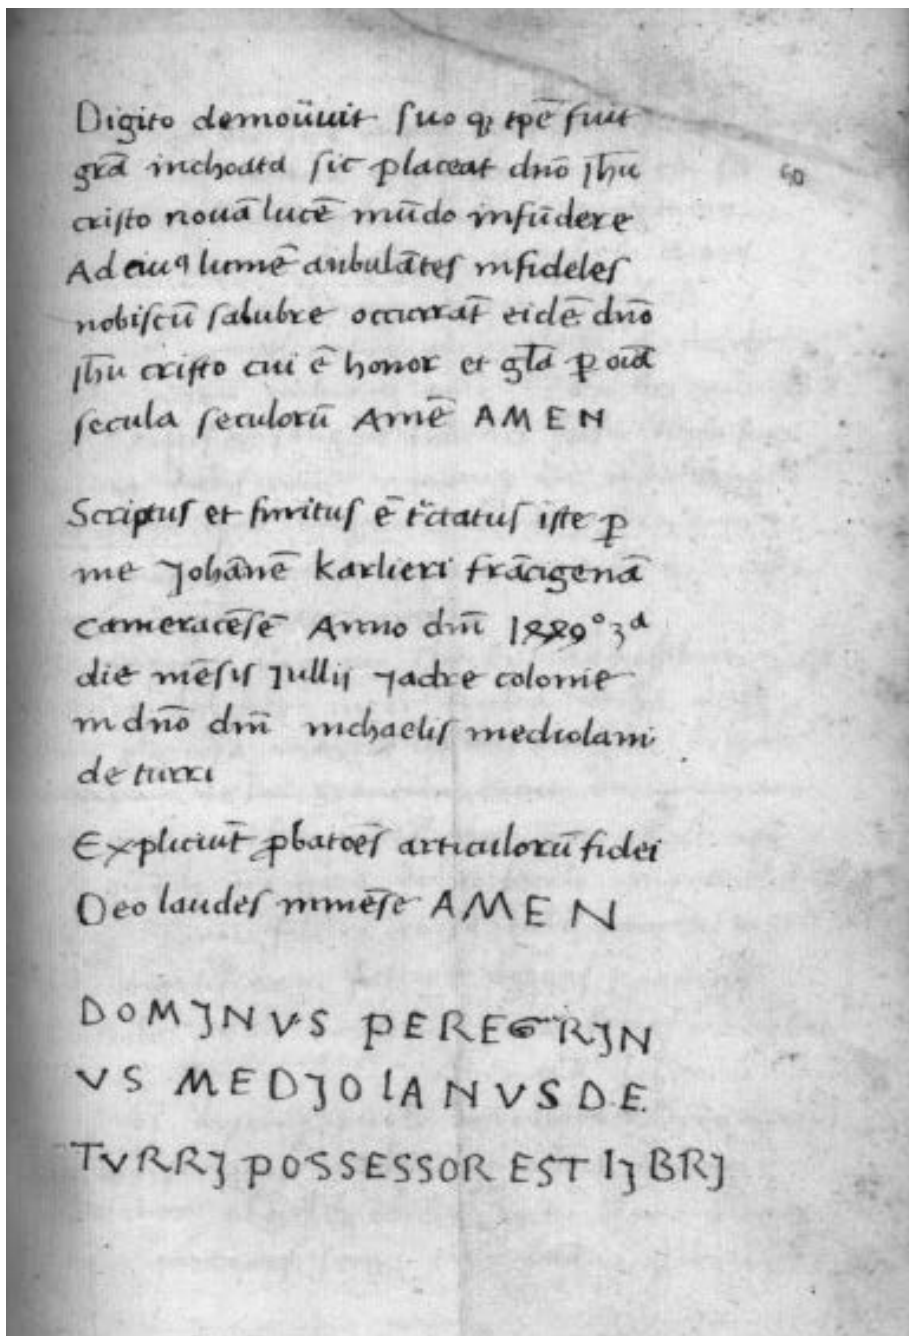 Digito demoūuit suo q̨ tpē fuit
grā inchoata sic placeat dnō jh̄u
cristo nouā lucē mūdo infūdere
Ad eiuꝯ lumē anbulātes infideles
nobiscū salubre occurrāt eidē dnō
jh̄u cristo cui ē honor et gl̄a ꝑ oīa
secula seculorū Amē AMEN
60
Scriptus et finitus ē tꝛctatus iste ꝑ
me Johānē karlieri frācigenā
cameracēsē Anno dnī 1449° 3ᵃ
die mēsis Jullij Jadre colonie
in dnō dnī michaelis mediolani
de turri
Expliciūt ꝓbatoēs articulorū fidei
Deo laudes inmēse AMEN
DOMJNVS PEREGRJN
VS MEDJOLANVS D.E.
TVRRJ POSSESSOR EST lJBRJ